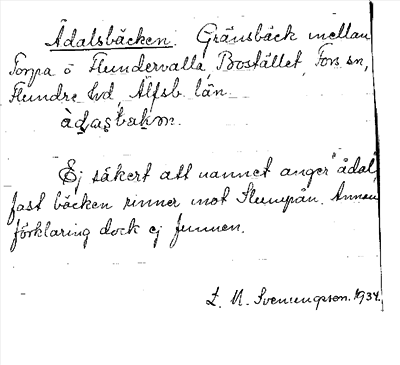 Ådalsbäcken. Gränsbäck mellan
Torpa o Flundervalla, Bostället, Fors sn,
Flundre hd, Älfsb. län.
àdạsbakm.
Ej säkert att namnet anger "ådal",
fast bäcken rinner mot Slumpån. Annan
förklaring dock ej funnen.
L. M. Svenungsson. 1934.